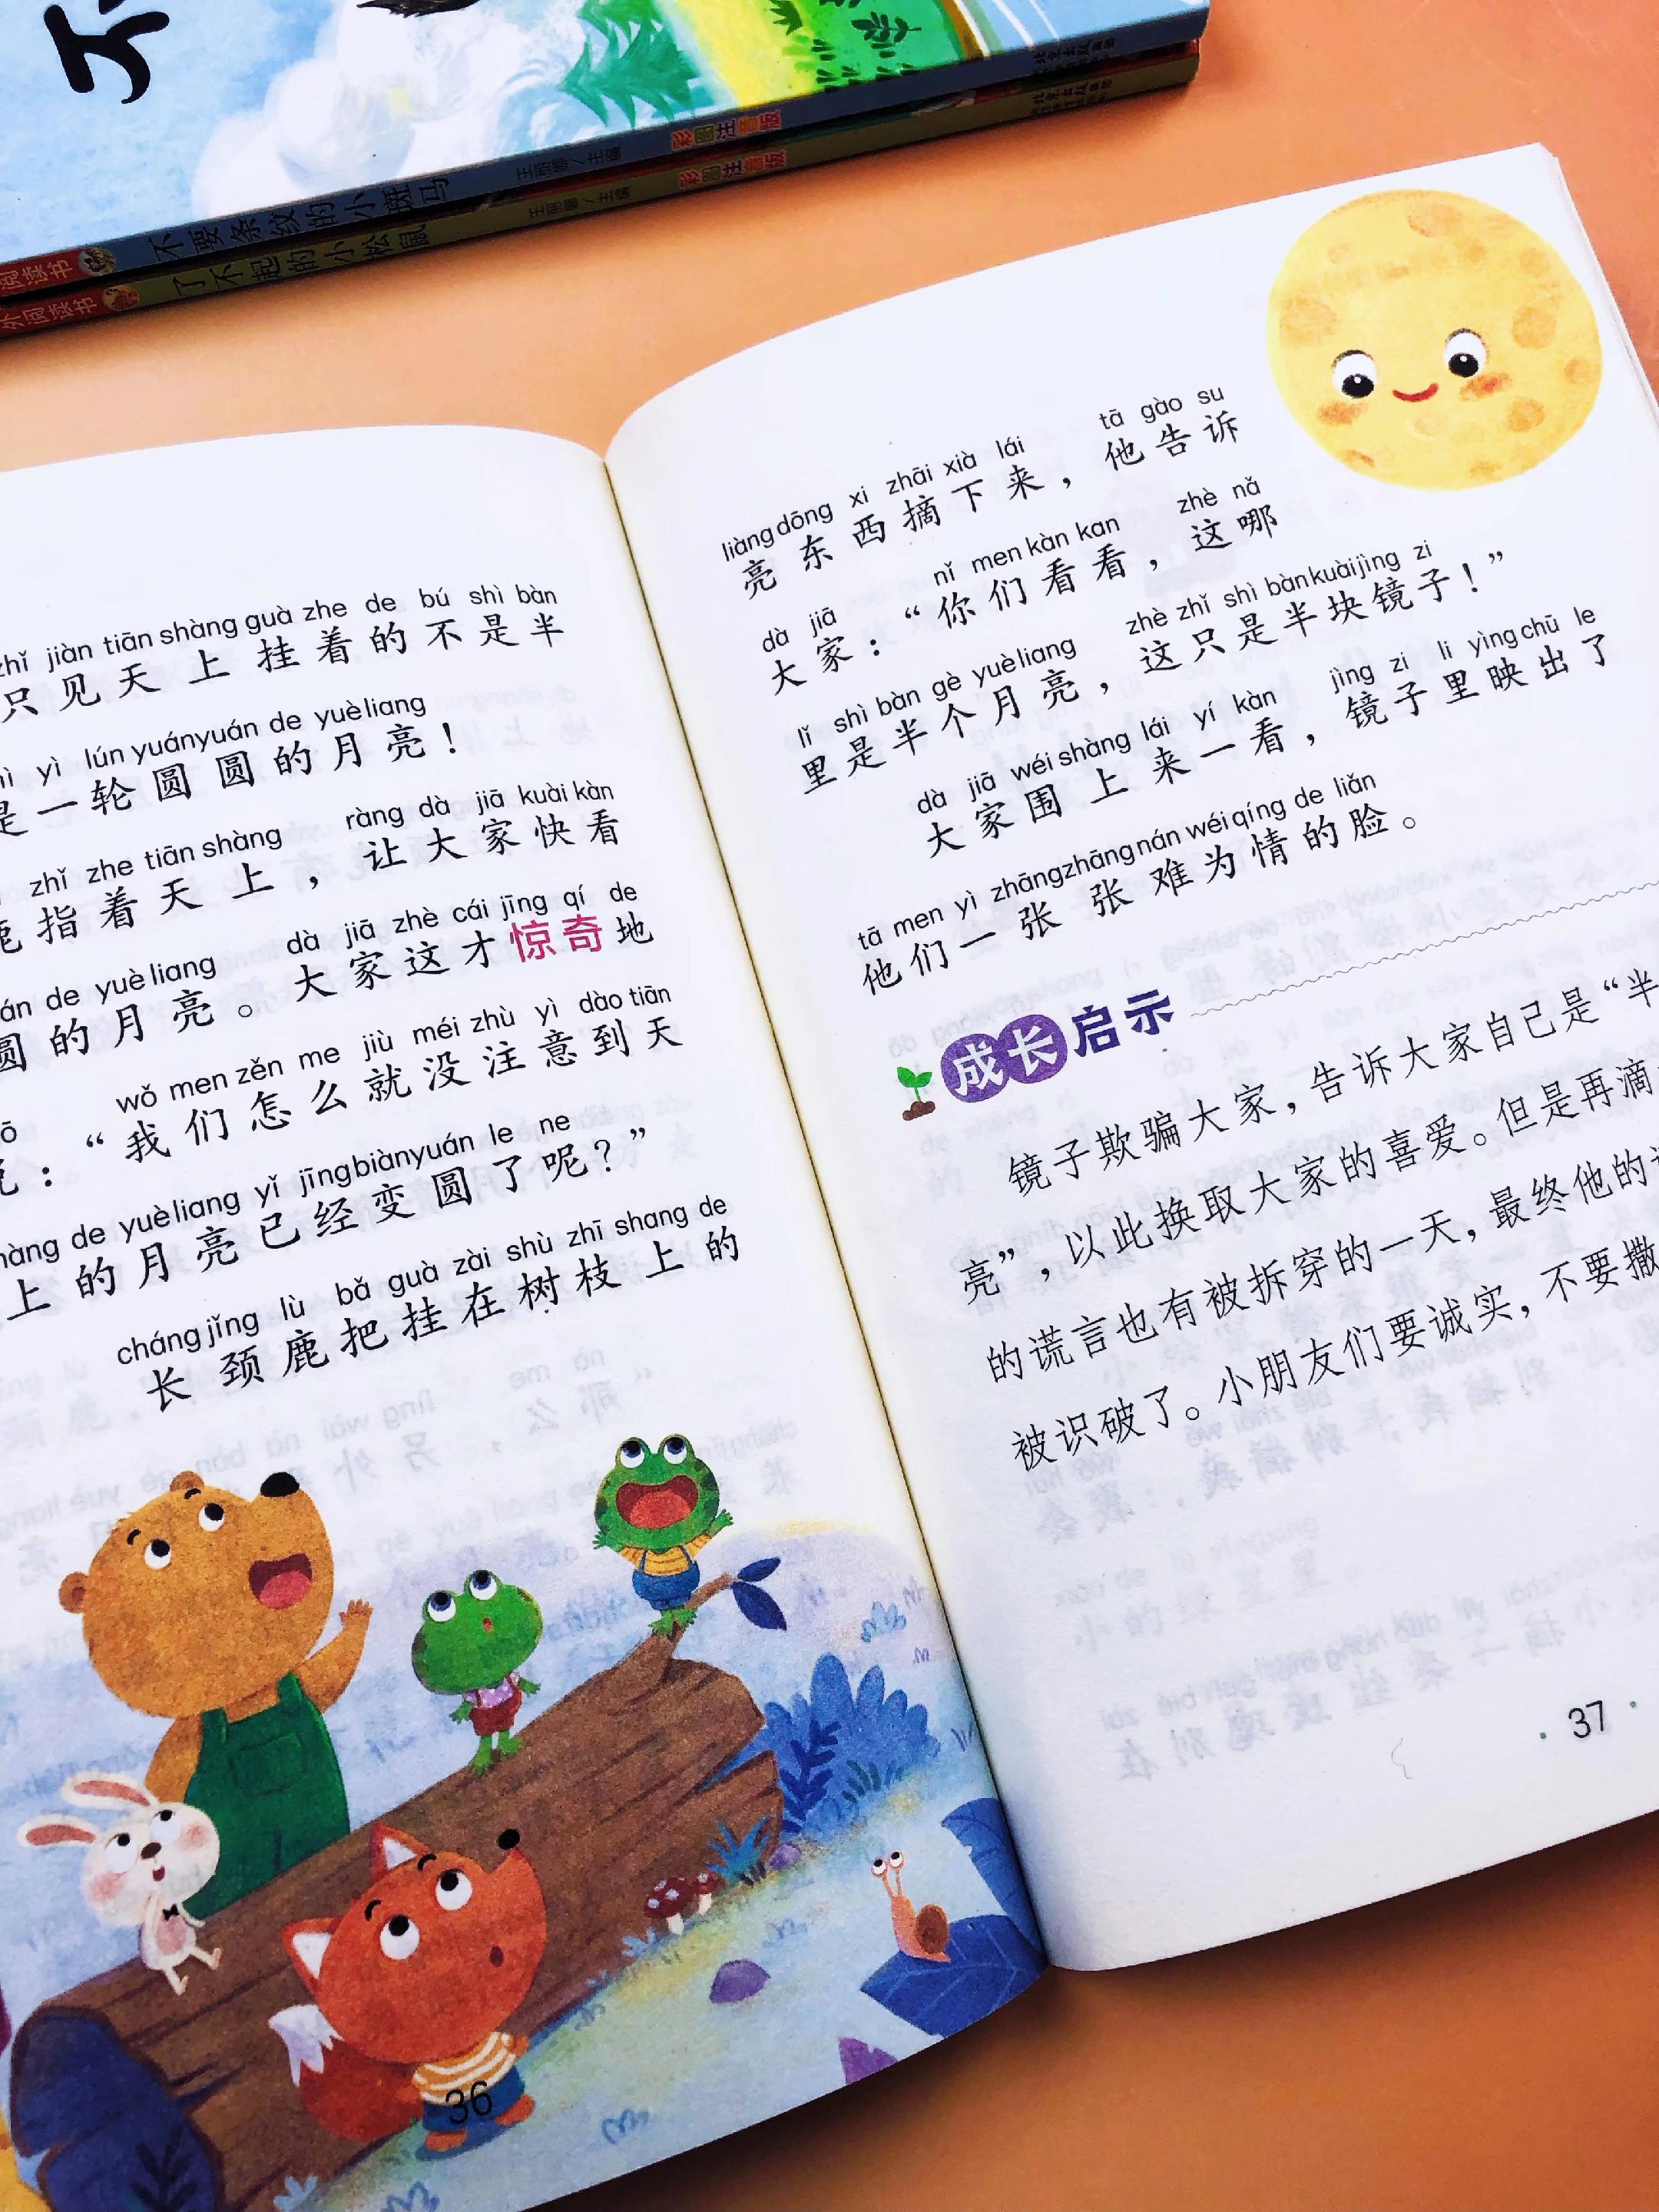 不
不要条纹的小斑马 王丽娜/主编 彩图注音版
阅读书
了不起的小松鼠 王丽娜/主编 彩图注音版
外阅读书
zhǐ jiàn tiān shàng guà zhe de bú shì bàn
只见天上挂着的不是半
yì lún yuányuán de yuèliang
是一轮圆圆的月亮！
zhǐ zhe tiān shàng ràng dà jiā kuài kàn
鹿指着天上，让大家快看
de yuèliang dà jiā zhè cái jīng qí de
圆的月亮。大家这才惊奇地
wǒ men zěn me jiù méi zhù yì dào tiān
：“我们怎么就没注意到天
de yuèliang yǐ jīngbiànyuán le ne
上的月亮已经变圆了呢？”
cháng jǐng lù bǎ guà zài shù zhī shang de
长颈鹿把挂在树枝上的
36
liàng dōng xi zhāi xià lái tā gào su
亮东西摘下来，他告诉
dà jiā nǐ men kàn kan zhè nǎ
大家：“你们看看，这哪
lǐ shì bàn gè yuèliang zhè zhǐ shì bànkuàijìng zi
里是半个月亮，这只是半块镜子！”
dà jiā wéi shàng lái yí kàn jìng zi li yìngchū le
大家围上来一看，镜子里映出了
tā men yì zhāngzhāngnán wéiqíng de liǎn
他们一张张难为情的脸。
成长启示
镜子欺骗大家，告诉大家自己是“半
亮”，以此换取大家的喜爱。但是再滴
的谎言也有被拆穿的一天，最终他的
被识破了。小朋友们要诚实，不要撒
37